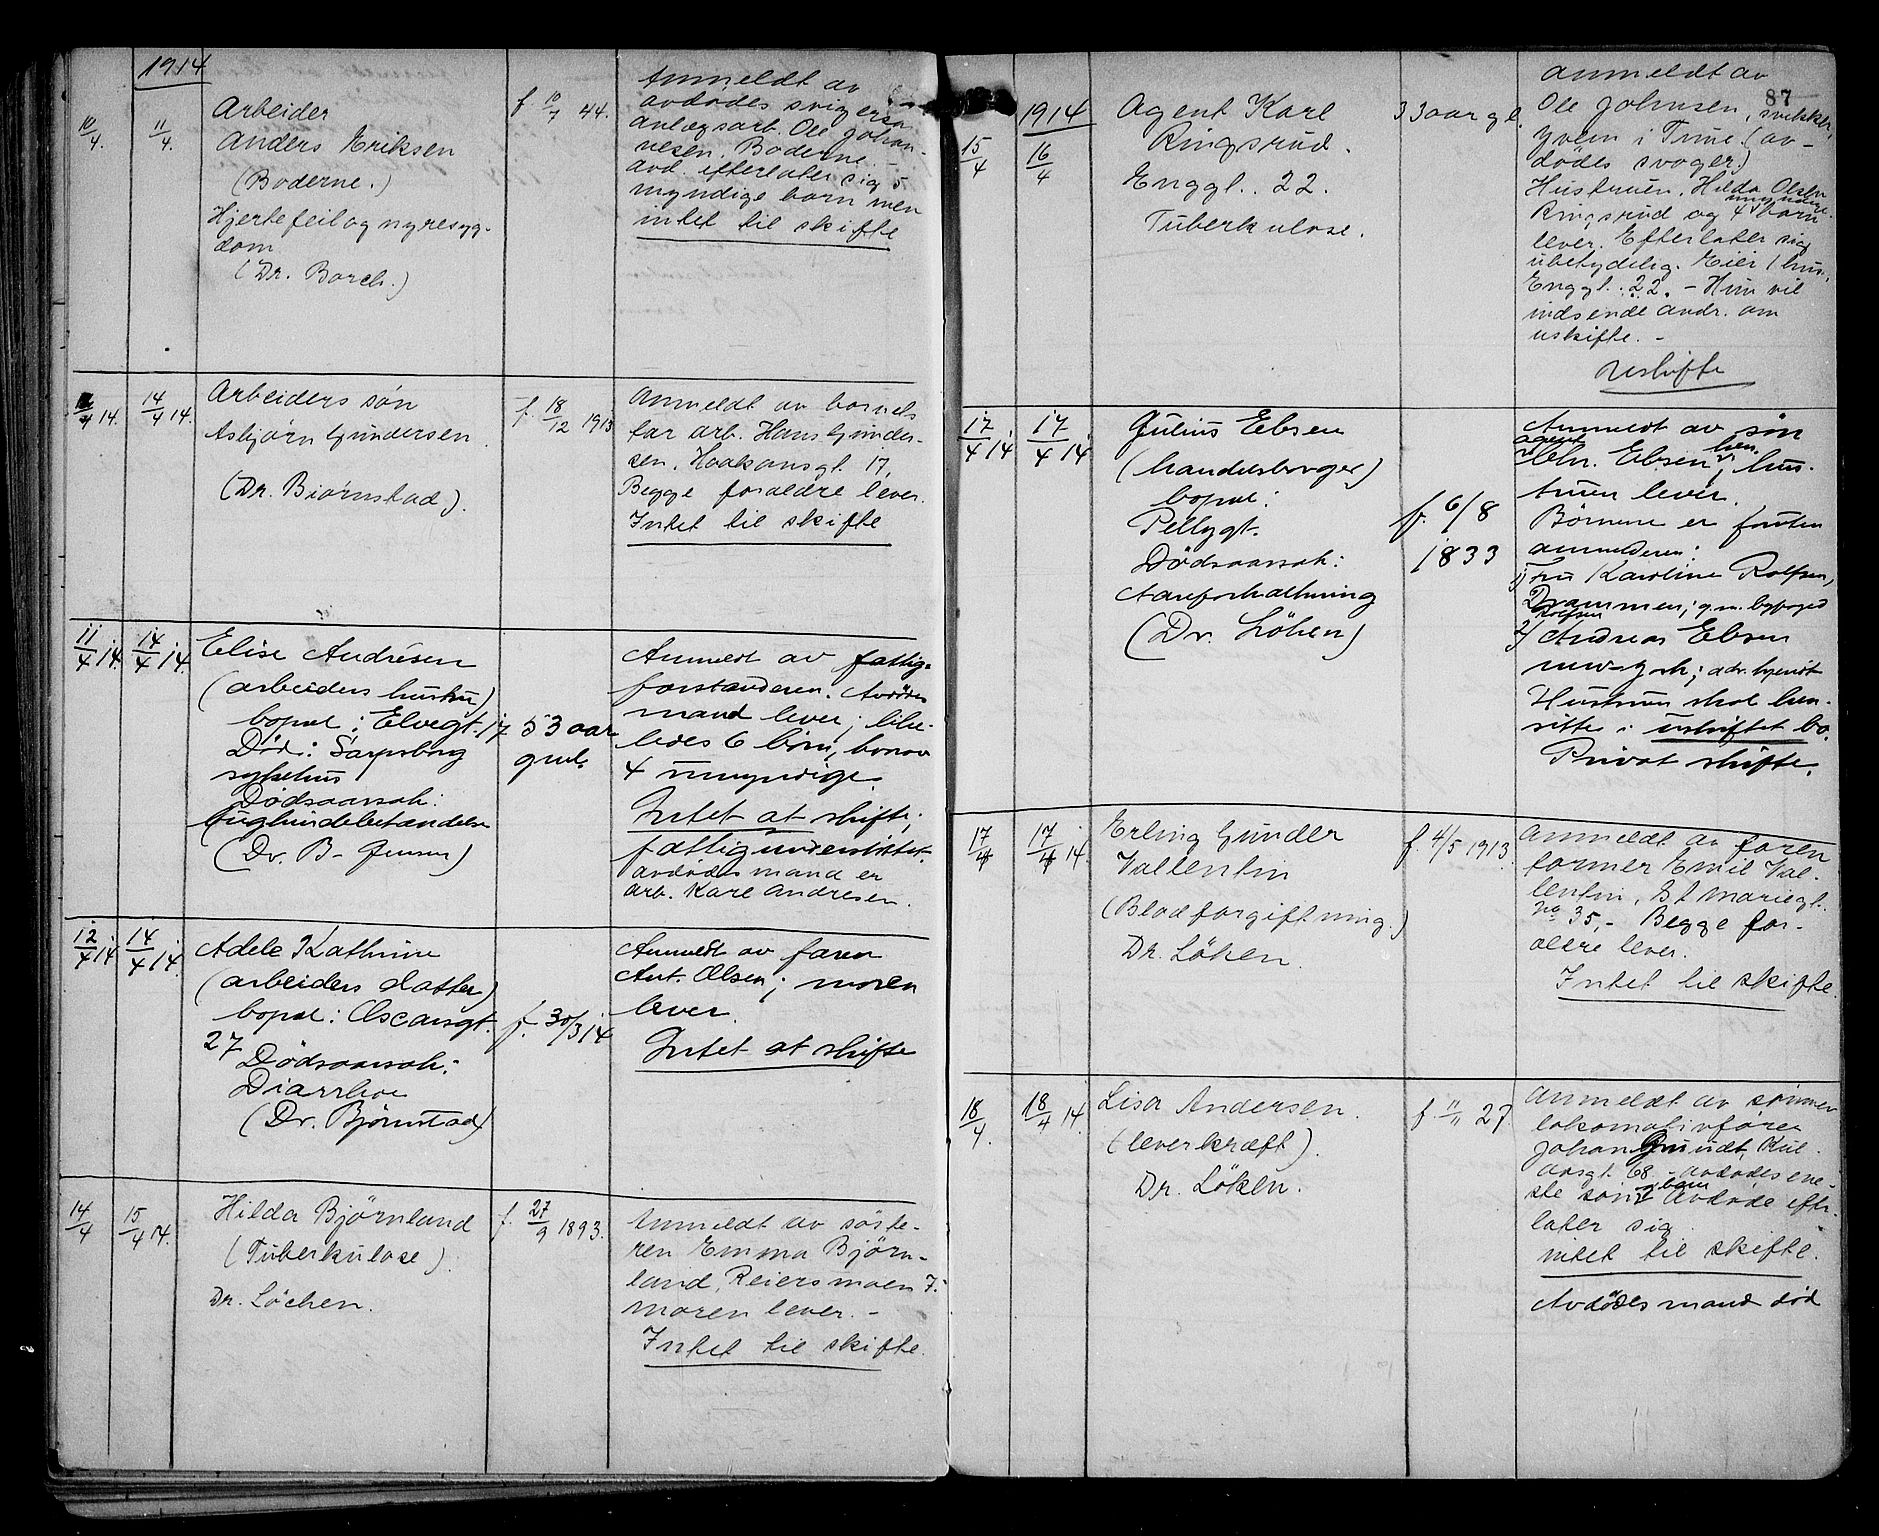 1914
10/4.
11/4.
Arbeider
Anders Eriksen
(Boderne.)
Hjertefeil og nyresyg-
dom
(Dr. Borch.)
f 10/7 44.
Anmeldt av
avdødes svigersøn
anlægsarb. Ole Johan-
nesen, Boderne. -
Avd. efterlater sig 5
myndige barn men
intet til skifte
12/4 14.
14/4 14.
Arbeiders søn
Asbjørn Gundersen
(Dr. Biørnstad).
f. 18/12 1913
Anmeldt av barnets
far arb. Hans Gunder-
sen, Haakonsgt. 17,
Begge forældre lever.
Intet til skifte
11/4 14.
14/4 14.
Elise Andrésen
(arbeiders hustru)
bopæl: Elvegt. 17
Død: Sarpsborg
sykehus
Dødsaarsak:
bughindebetændelse
(Dr. B- Jensen)
53 aar
gml.
Anmeldt av fattig-
forstanderen. Avdødes
mand lever; like-
ledes 6 børn, hvorav
4 umyndige.
Intet at skifte;
fattigunderstøttet.
avdødes mand er
arb. Karl Andresen.
12/4 14
14/4 14.
Adele Kathrine
(arbeiders datter)
bopæl: Oscarsgt.
27
Dødsaarsak:
Diarrhoe
(Dr. Bjørnstad)
f. 30/3 14
Anmeldt av faren
Ant. Olsen; moren
lever.
Intet at skifte
14/4
15/4 14.
Hilda Bjørnland
(Tuberkulose).
Dr. Löchen.
f. 27/9 1893.
Anmeldt av søste-
ren Emma Bjørn-
land, Reiersmoen 7.
moren lever. -
Intet til skifte.
87
1914
15/4
16/4
Agent Karl
Ringsrud.
Enggt. 22.
Tuberkulose.
33 aar gl.
Anmeldt av
Ole Johnsen, snekker,
i Tune (av-
dødes svoger)
Hustruen, Hilda Olsen
umyndige
Ringsrud og 4 barn
lever. Efterlater sig
ubetydelig. Eier 1 hus,
Enggt. 22. - Hun vil
indsende andr. om
uskifte. -
Uskifte
17/4 14
17/4 14
Julius Ebsen
(handelsborger)
bopæl:
Pellygt.
Dødsaarsak:
Aareforkalkning
(Dr. Löken)
f. 6/8
1833
Anmeldt av søn
agent
Chr. Ebsen, her.
hus-
truen lever.
Børnene er foruten
anmelderen:
1) Fru Karoline Rolfsen,
Drammen; g.m. byfoged
Rolfsen
2) Andreas Ebsen
new-york; adr. ubekjendt
Hustruen skal hen-
sitte i uskiftet bo.
Privat skifte.
17/4
17/4 14.
Erling Gunder
Vallentin
(Blodforgiftning.)
Dr. Löken.
f. 4/5 1913.
Anmeldt av faren
former Emil Val-
lentin, St Mariegt.
no 35, - Begge for-
ældre lever.
Intet til skifte.
18/4.
18/4 14.
Lisa Andersen.
(leverkræft).
Dr. Löken.
f 11/11 27.
Anmeldt av sønnen
lokomotivfører
Johan Grundt, Kul-
aasgt. 68 - avdødes ene-
ste søn
barn
Avdøde efter-
later sig
intet til skifte.
Avdødes mand død